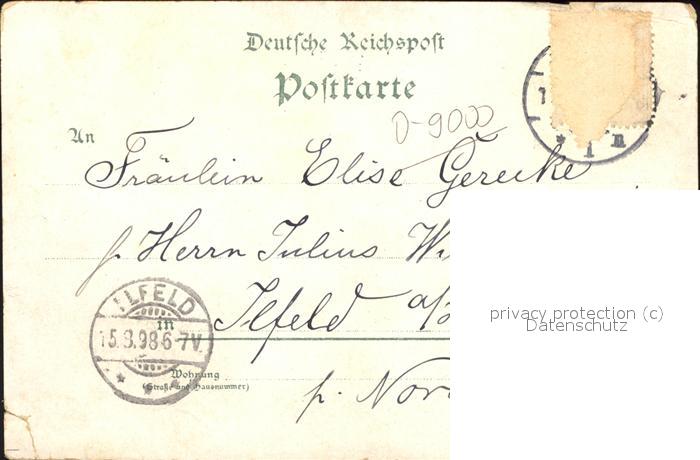 Deutsche Reichspost
Postkarte
D-9000
An
Fräulein Elise Gerecke
p. Herrn Julius W
ILFELD
in Ilfeld a/
15.8.98 6-7V.
Wohnung
(Straße und Hausnummer)
p. Nor
privacy protection (c)
Datenschutz